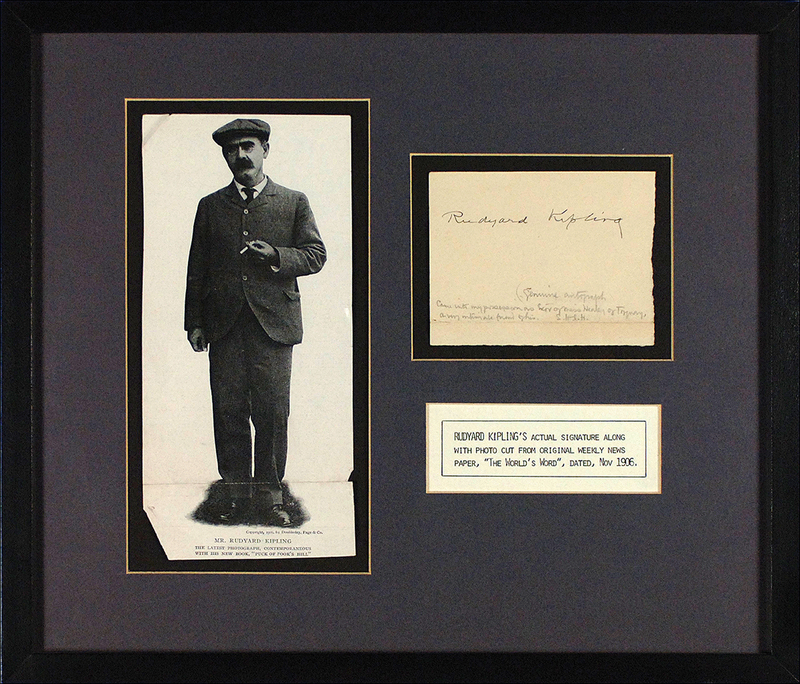 Copyright, 1906, by Doubleday, Page & Co.
MR. RUDYARD KIPLING
THE LATEST PHOTOGRAPH, CONTEMPORANEOUS
WITH HIS NEW BOOK, "PUCK OF POOK'S HILL"
Rudyard Kipling
(Genuine autograph
Came into my possession as Exor of Miss
a very intimate friend of his.
RUDYARD KIPLING'S ACTUAL SIGNATURE ALONG
WITH PHOTO CUT FROM ORIGINAL WEEKLY NEWS
PAPER, "THE WORLD'S WORD", DATED, NOV 1906.